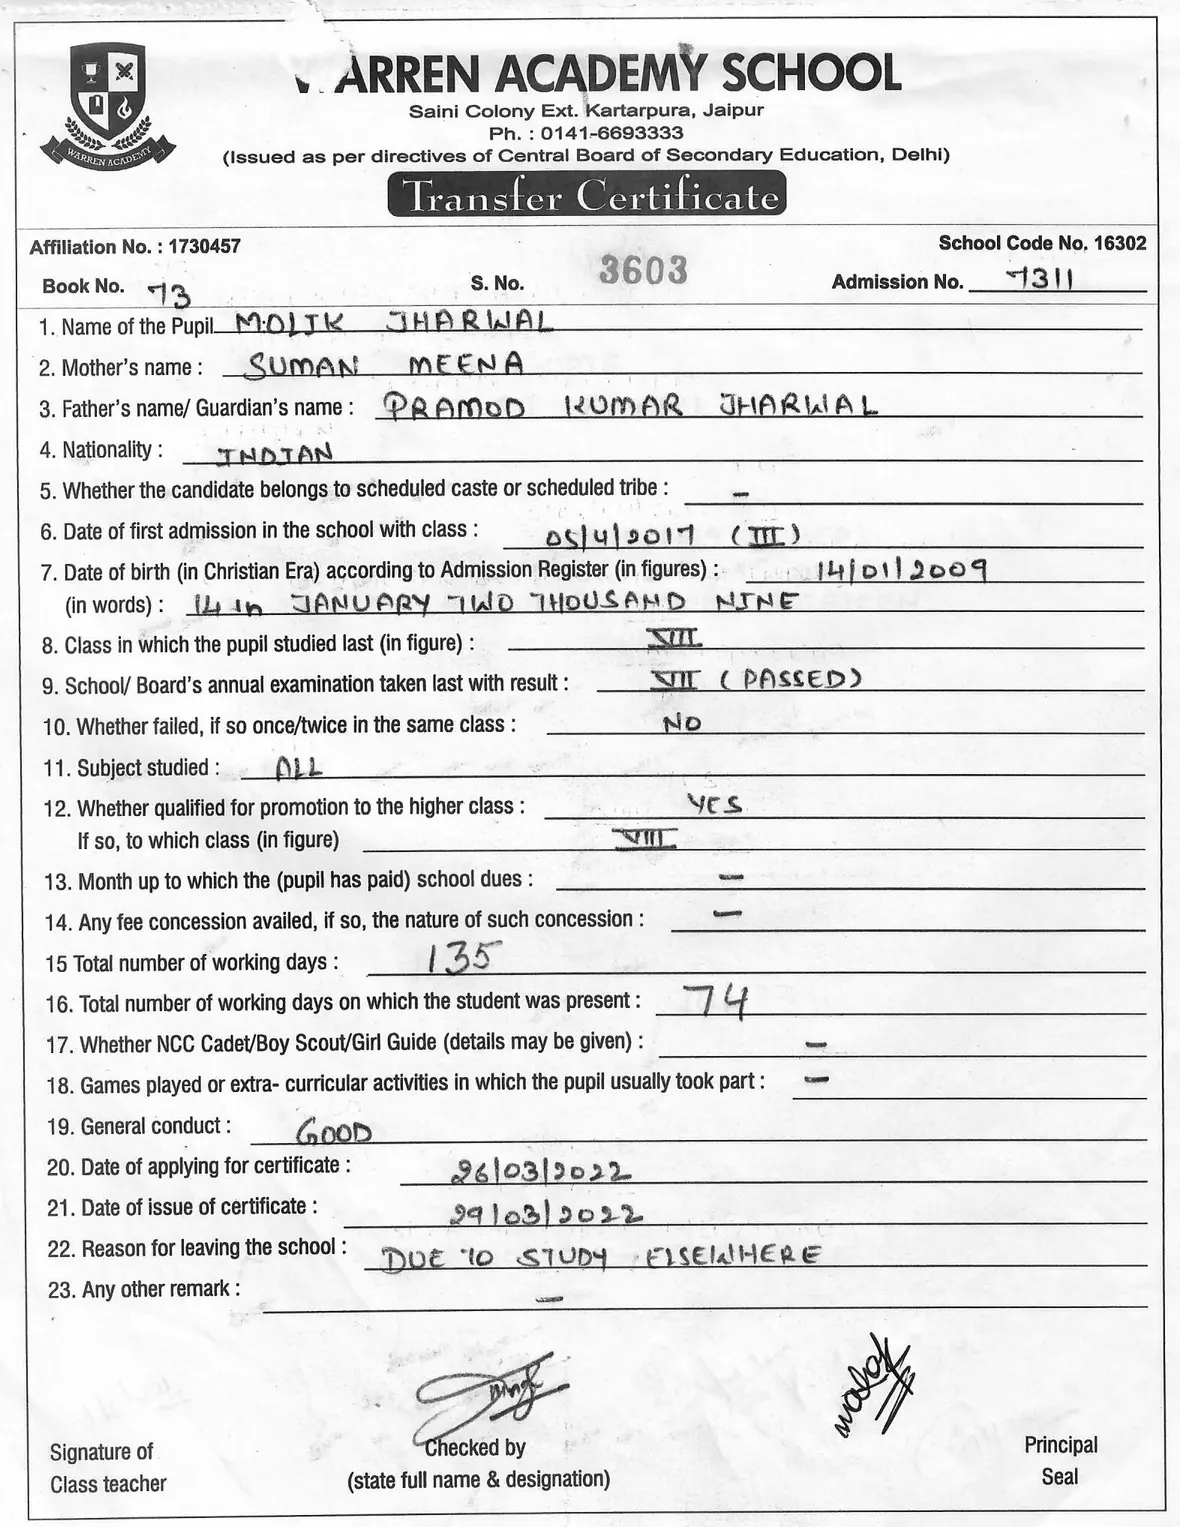 WARREN ACADEMY SCHOOL
Saini Colony Ext. Kartarpura, Jaipur
Ph. : 0141-6693333
(Issued as per directives of Central Board of Secondary Education, Delhi)
WARREN ACADEMY
Transfer Certificate
Affiliation No. : 1730457 School Code No. 16302
Book No. 73 S. No. 3603 Admission No. 7311
1. Name of the Pupil MOLIK JHARWAL
2. Mother's name : SUMAN MEENA
3. Father's name/ Guardian's name : PRAMOD KUMAR JHARWAL
4. Nationality : INDIAN
5. Whether the candidate belongs to scheduled caste or scheduled tribe : -
6. Date of first admission in the school with class : 05/4/2017 (III)
7. Date of birth (in Christian Era) according to Admission Register (in figures) : 14/01/2009
(in words) : 14 in JANUARY TWO THOUSAND NINE
8. Class in which the pupil studied last (in figure) : VII
9. School/ Board's annual examination taken last with result : VII (PASSED)
10. Whether failed, if so once/twice in the same class : NO
11. Subject studied : ALL
12. Whether qualified for promotion to the higher class : YES
If so, to which class (in figure) VIII
13. Month up to which the (pupil has paid) school dues : -
14. Any fee concession availed, if so, the nature of such concession : -
15 Total number of working days : 135
16. Total number of working days on which the student was present : 74
17. Whether NCC Cadet/Boy Scout/Girl Guide (details may be given) : -
18. Games played or extra- curricular activities in which the pupil usually took part : -
19. General conduct : GOOD
20. Date of applying for certificate : 26/03/2022
21. Date of issue of certificate : 29/03/2022
22. Reason for leaving the school : DUE TO STUDY ELSEWHERE
23. Any other remark : -
Signature of Checked by Principal
Class teacher (state full name & designation) Seal